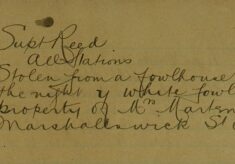 Supt Reed
All Stations
Stolen from a fowlhouse
the night 4 white fowl
property of Mrs Marten
Marshallswick St